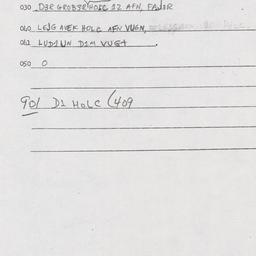 030 DER GROBER HOLC 12 AFN, FAVOR
060 LEIG AVEK HOLC AFN VUGN,
061 LUDIUN DIM VUGT
050 0
90/ DI HOLC (409